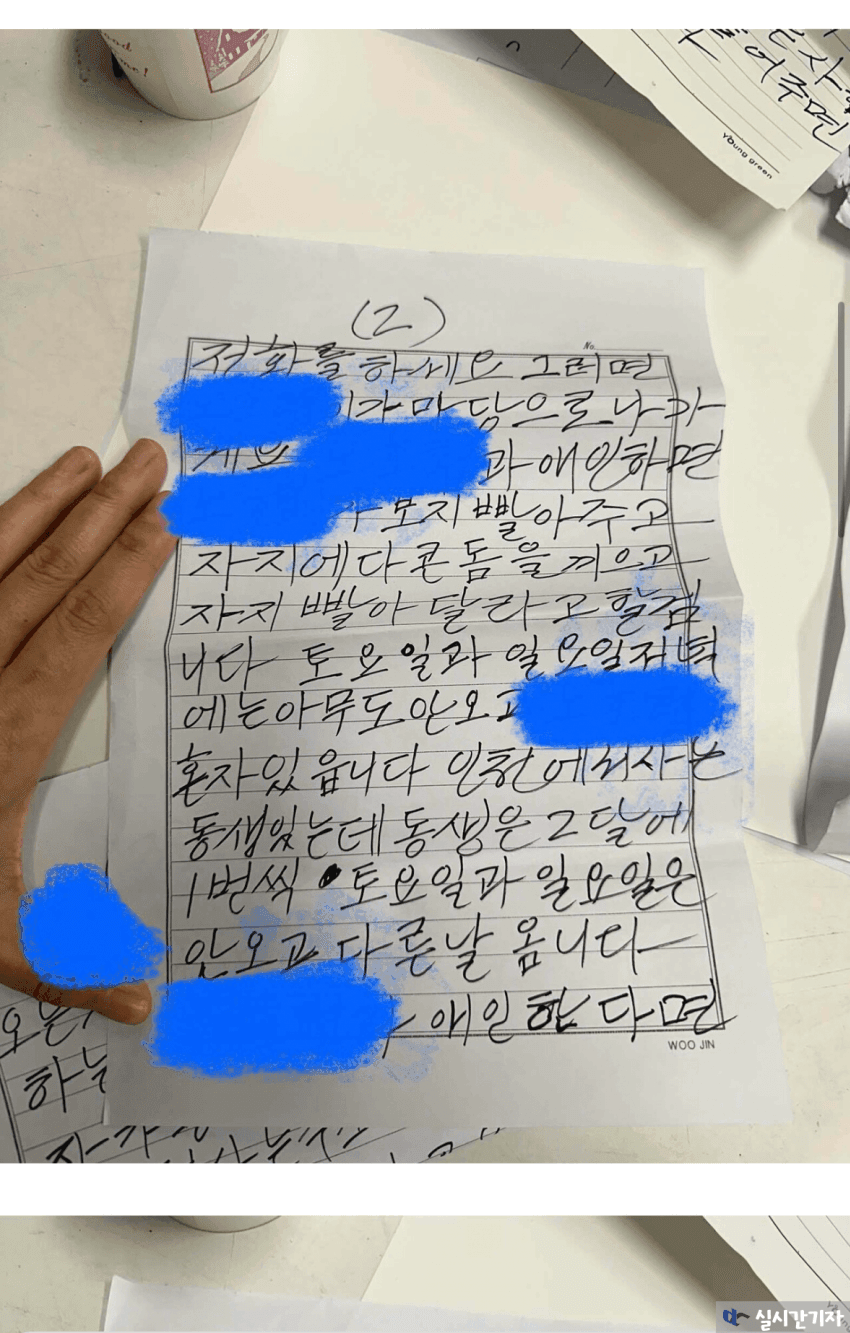 사
어주면
young green
(2)
No.
전화를 하세요 그러면
가 마당으로 나가
과 애인하면
보지 빨아주고
자지에다 콘돔을 끼우고
자지 빨아 달라고 할겁
니다 토요일과 일요일저녁
에는 아무도 안오고
혼자 있읍니다 인천에서 사는
동생있는데 동생은 2달에
1번씩 토요일과 일요일은
안오고 다른날 옵니다
애인 한다면
WOO JIN
하는
실시간기자